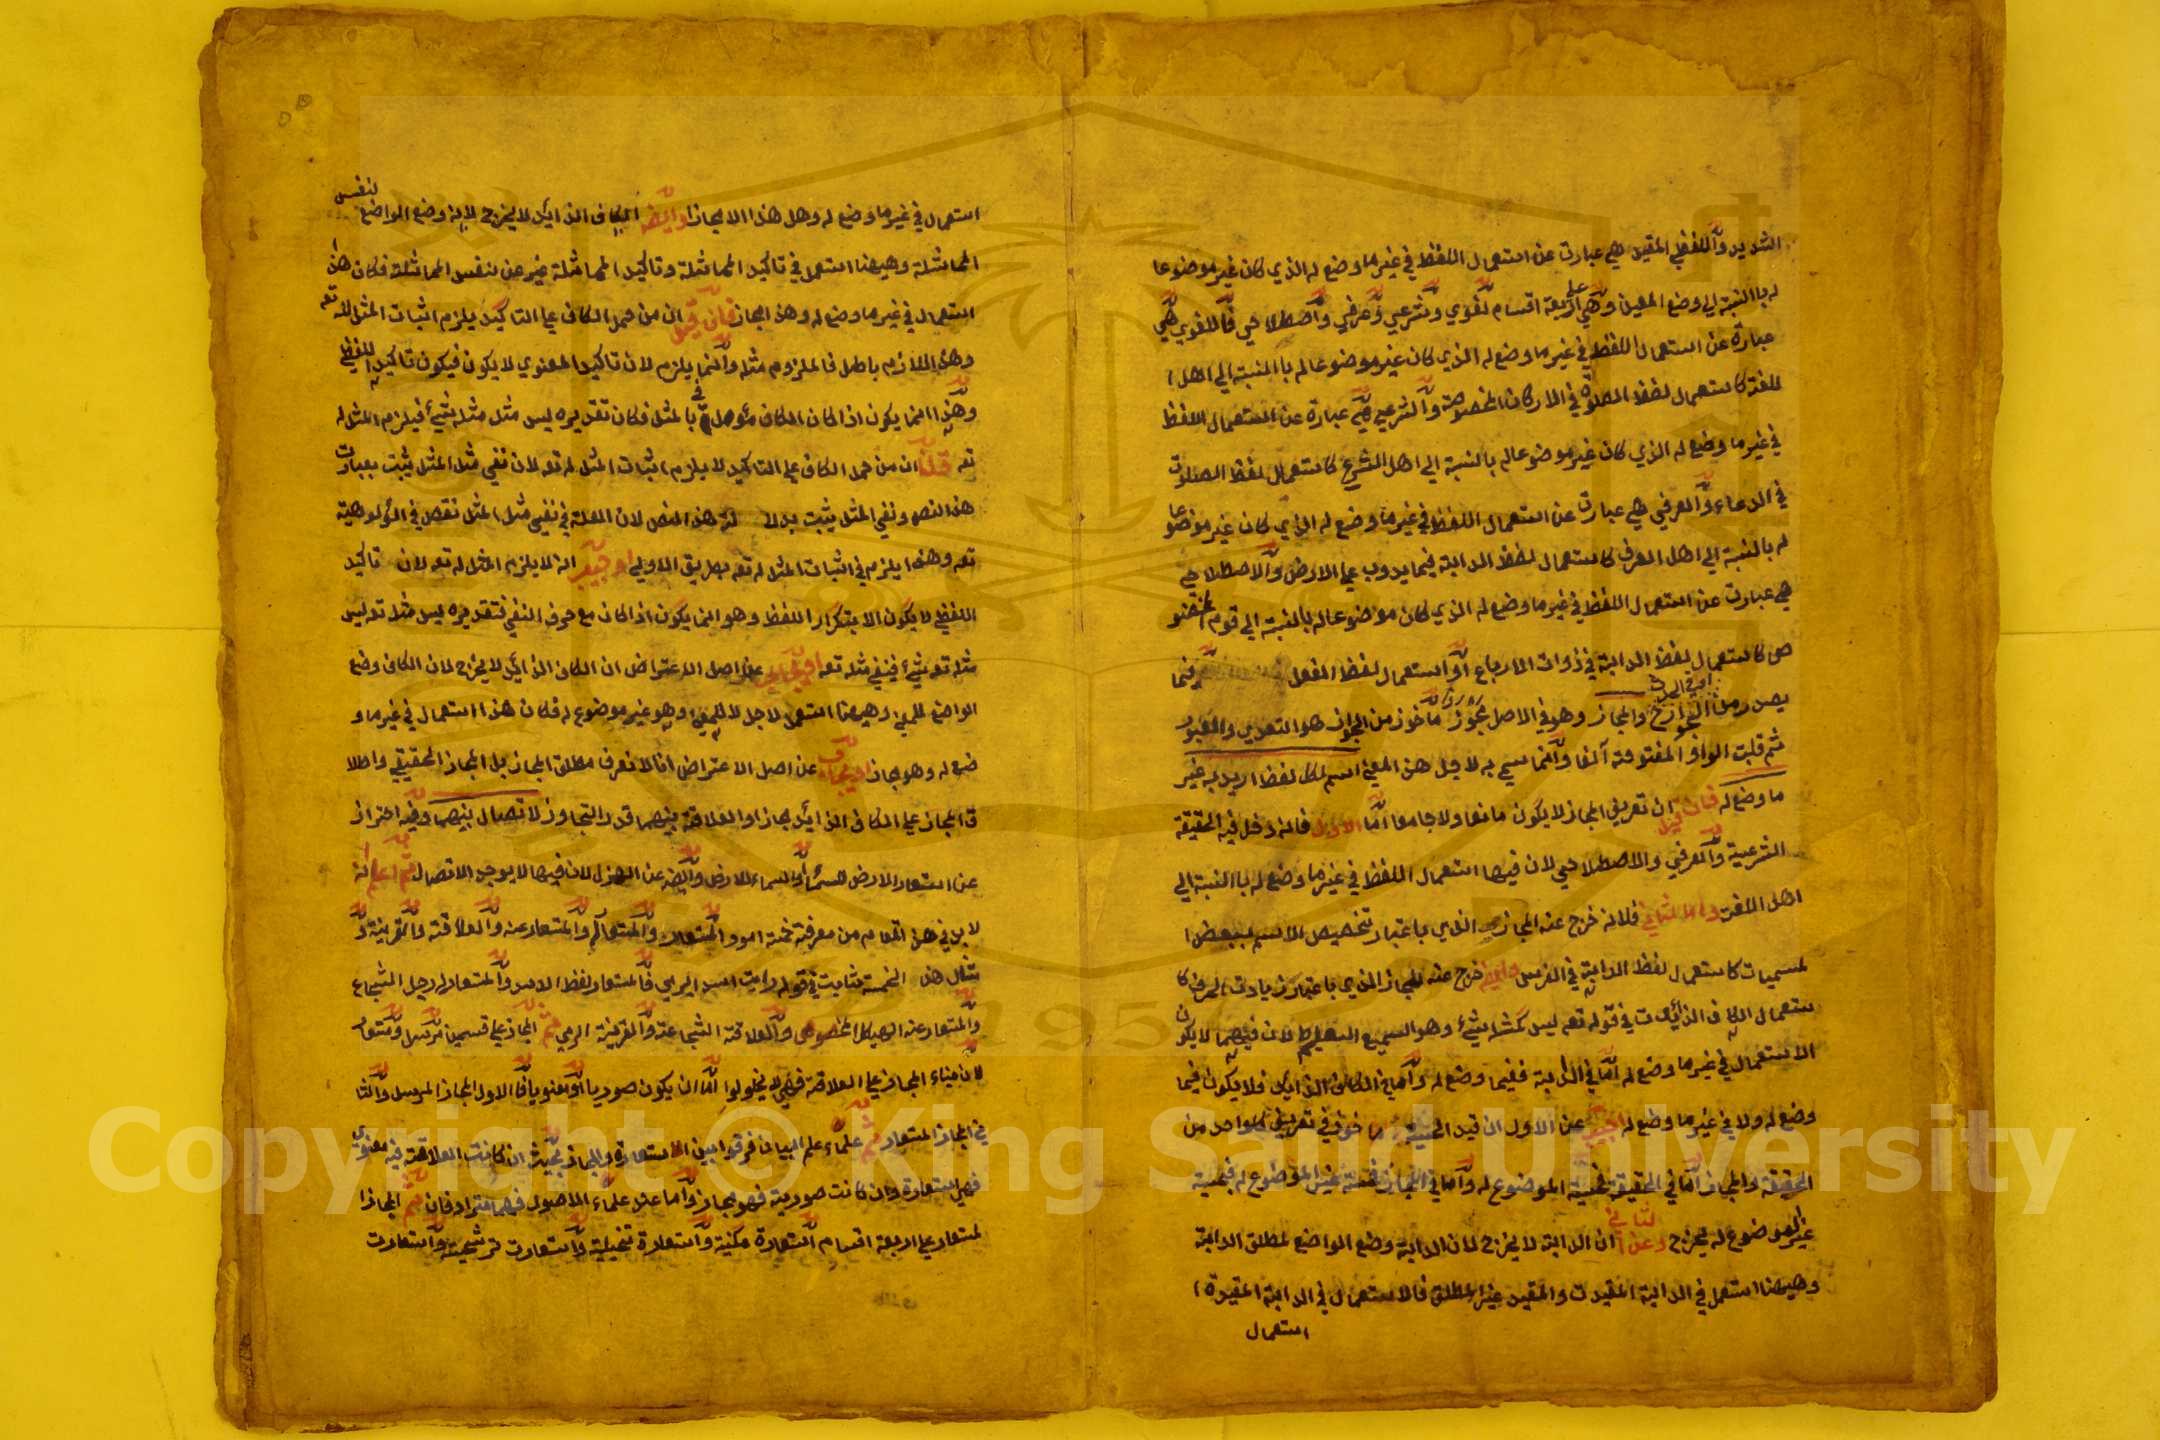 الشديد واللفظي المقيد هي عبارت عن استعمال اللفظ في غير ما وضع له الذي كان غير موضوعا
له باالنسبة الي وضع المعين وهي علي اربعة اقسام لغوي وشرعي وعرفي واصطلاحي فاللغوي هي
عبارة عن استعمال اللفظ في غير ما وضع له الذي كان غير موضوعا له باالنسبة الي اهل ا
للغة كاستعمال لفظ الصلوة في الاركان المخصوصة والشرعي هي عبارة عن استعمال اللفظ
في غير ما وضع له الذي كان غير موضوعا له بالنسبة الي اهل الشرع كاستعمال لفظ الصلوت
في الدعاء والعرفي هي عبارت عن استعمال اللفظ في غير ما وضع له الذي كان غير موضوعا
له بالنسبة الي اهل العرف كاستعمال لفظ الدابة فيما يدوب علي الارض والاصطلاحي
هي عبارت عن استعمال اللفظ في غير ما وضع له الذي كان موضوعا له بالنسبة الي قوم مخصو
ص كاستعمال لفظ الدابة في ذوات الارباع او استعمال لفظ الفعل فيما
يصدر من الجوارح والمجاز وهو في الاصل مجوز ماخوز من الجواز هو التعدي والعبور
ثم قلبت الواو المفتوحة آلفا وانما سمي به لاجل هذ المعني اسم لكل لفظ اريد به غير
ما وضع له فان قيل ان تعريف المجاز لا يكون مانعا ولا جامعا اما الاول فانه دخل فيه الحقيقة
الشرعية والعرفي والاصطلاحي لان فيها استعمال اللفظ في غير ما وضع له باالنسبة الي
اهل اللغة واما الثاني فلانه خرج عنه المجاز الذي باعتبار تخصيص الاسم ببعض ا
لمسميات كاستعمال لفظ الدابة في الفرس وايضا خرج عنه المجاز الذي باعتبار زيادت الحرف كا
ستعمال الكاف الذائدت في قوله تعه ليس كمثله شيئ وهو السميع البصير لان فيهما لا يكون
الاستعمال في غير ما وضع له اما في الدابة ففيما وضع له واما في الكاف الذايد فلا يكون فيما
وضع له ولا في غير ما وضع له اجيب عن الاول ان قيد الحيثية ماخوذ في تعريف كلواحد من
الحقيقة والمجاز اما في الحقيقة فحيثية الموضوع له واما في المجاز فحيثية غير الموضوع له فحيثية
غير الموضوع له يخرج وعن الثاني ان الدابة لا يخرج لان الدابة وضع الواضع لمطلق الدابة
وهيهنا استعمل في الدابة المقيدت والمقيد غير المطلق فالاستعمال في الدابة المقيدة ا
استعمال
استعمال في غير ما وضع له وهل هذا الا مجازا وايضا الكاف الذايد لا يخرج لانه وضع الواضع لنفس
المماثلة وهيهنا استعمل في تاكيد المماثلة وتاكيد المماثلة غير عن لنفس المماثلة فكان هذا
استعمال في غير ما وضع له وهذ المجاز فان قيل ان من حمل الكاف علي التاكيد يلزم اثبات المثل لله تعه
وهذ اللازم باطل فالملزوم مثله وانما يلزم لان تاكيد المعنوي لا يكون فيكون تاكيد اللفظي
وهذا انما يكون اذا كان الكاف موصل في بالمثل فكان تقديره ليس مثل مثله شيئ فيلزم المثل له
تعه قلنا ان من حمل الكاف علي التاكيد لا يلزم اثبات المثل له تعه لان نفي مثل المثل يثبت بعبارت
هذ النص ونفي المثل يثبت بدلالة هذ النص لان العلة في نفي مثل المثل نقص في الئولوهية
تعه وهذ ايلزم في اثبات المثل له تعه بطريق الاولي او يجيب انه لا يلزم المثل له تعه لان تاكيد
اللفظي لا يكون الا بتكرار اللفظ وهو انما يكون اذا كان مع حرف النفي فتقديره ليس مثله تعه ليس
مثله تعه شيئ فينفي مثله تعه او يجاب عن اصل الاعتراض ان الكاف الذائد لا يخرج لان الكاف وضع
الواضع للمعني وهيهنا استعمل لاجل لا للمعني وهو غير موضوع له فكان هذ استعمال في غير ما و
ضع له وهو مجاز او يجاب عن اصل الاعتراض انا لا نعرف مطلق المجاز بل المجاز الحقيقي واطلا
ق المجاز علي الكاف الذايد مجازا والعلاقة بينهما قدر التجاوز لاتصال بينهما وفيه احتراز
عن استعار الارض للسماء والسماء للارض وايضا عن الهزل لان فيها لا يوجد الاتصال ثم اعلم انه
لا بد في هذ المقام من معرفة خمسة امور المستعار والمستعارله والمستعار عنه والعلاقة والقرينة و
مثال هذ الخمسة ثابت في قوله رايت اسد ايرمي فالمستعار لفظ الاسد والمستعارله رجل الشجاع
والمستعار عنه الهيكل المخصوص والعلاقة الشجاعة والقرينة الرمي ثم المجاز علي قسمين مرسل ومستعار
لان بناء المجاز علي العلاقة فهي لا يخلوا اما ان يكون صوريا او معنويا فالاول المجاز المرسل والثا
ني المجاز المستعار ثم علماء علم البيان فرقوا بين الاستعارة والمجاز بحيث ان كانت العلاقة فيه معنوي
فهي استعارة وان كانت صورية فهو مجاز واما عند علماء الاصول فهما مترادفان ثم المجاز ا
لمستعار علي اربعة اقسام استعارة مكنية واستعارة تخييلية واستعارت ترشيحية واستعارت
Copyright © King Saud University
1957